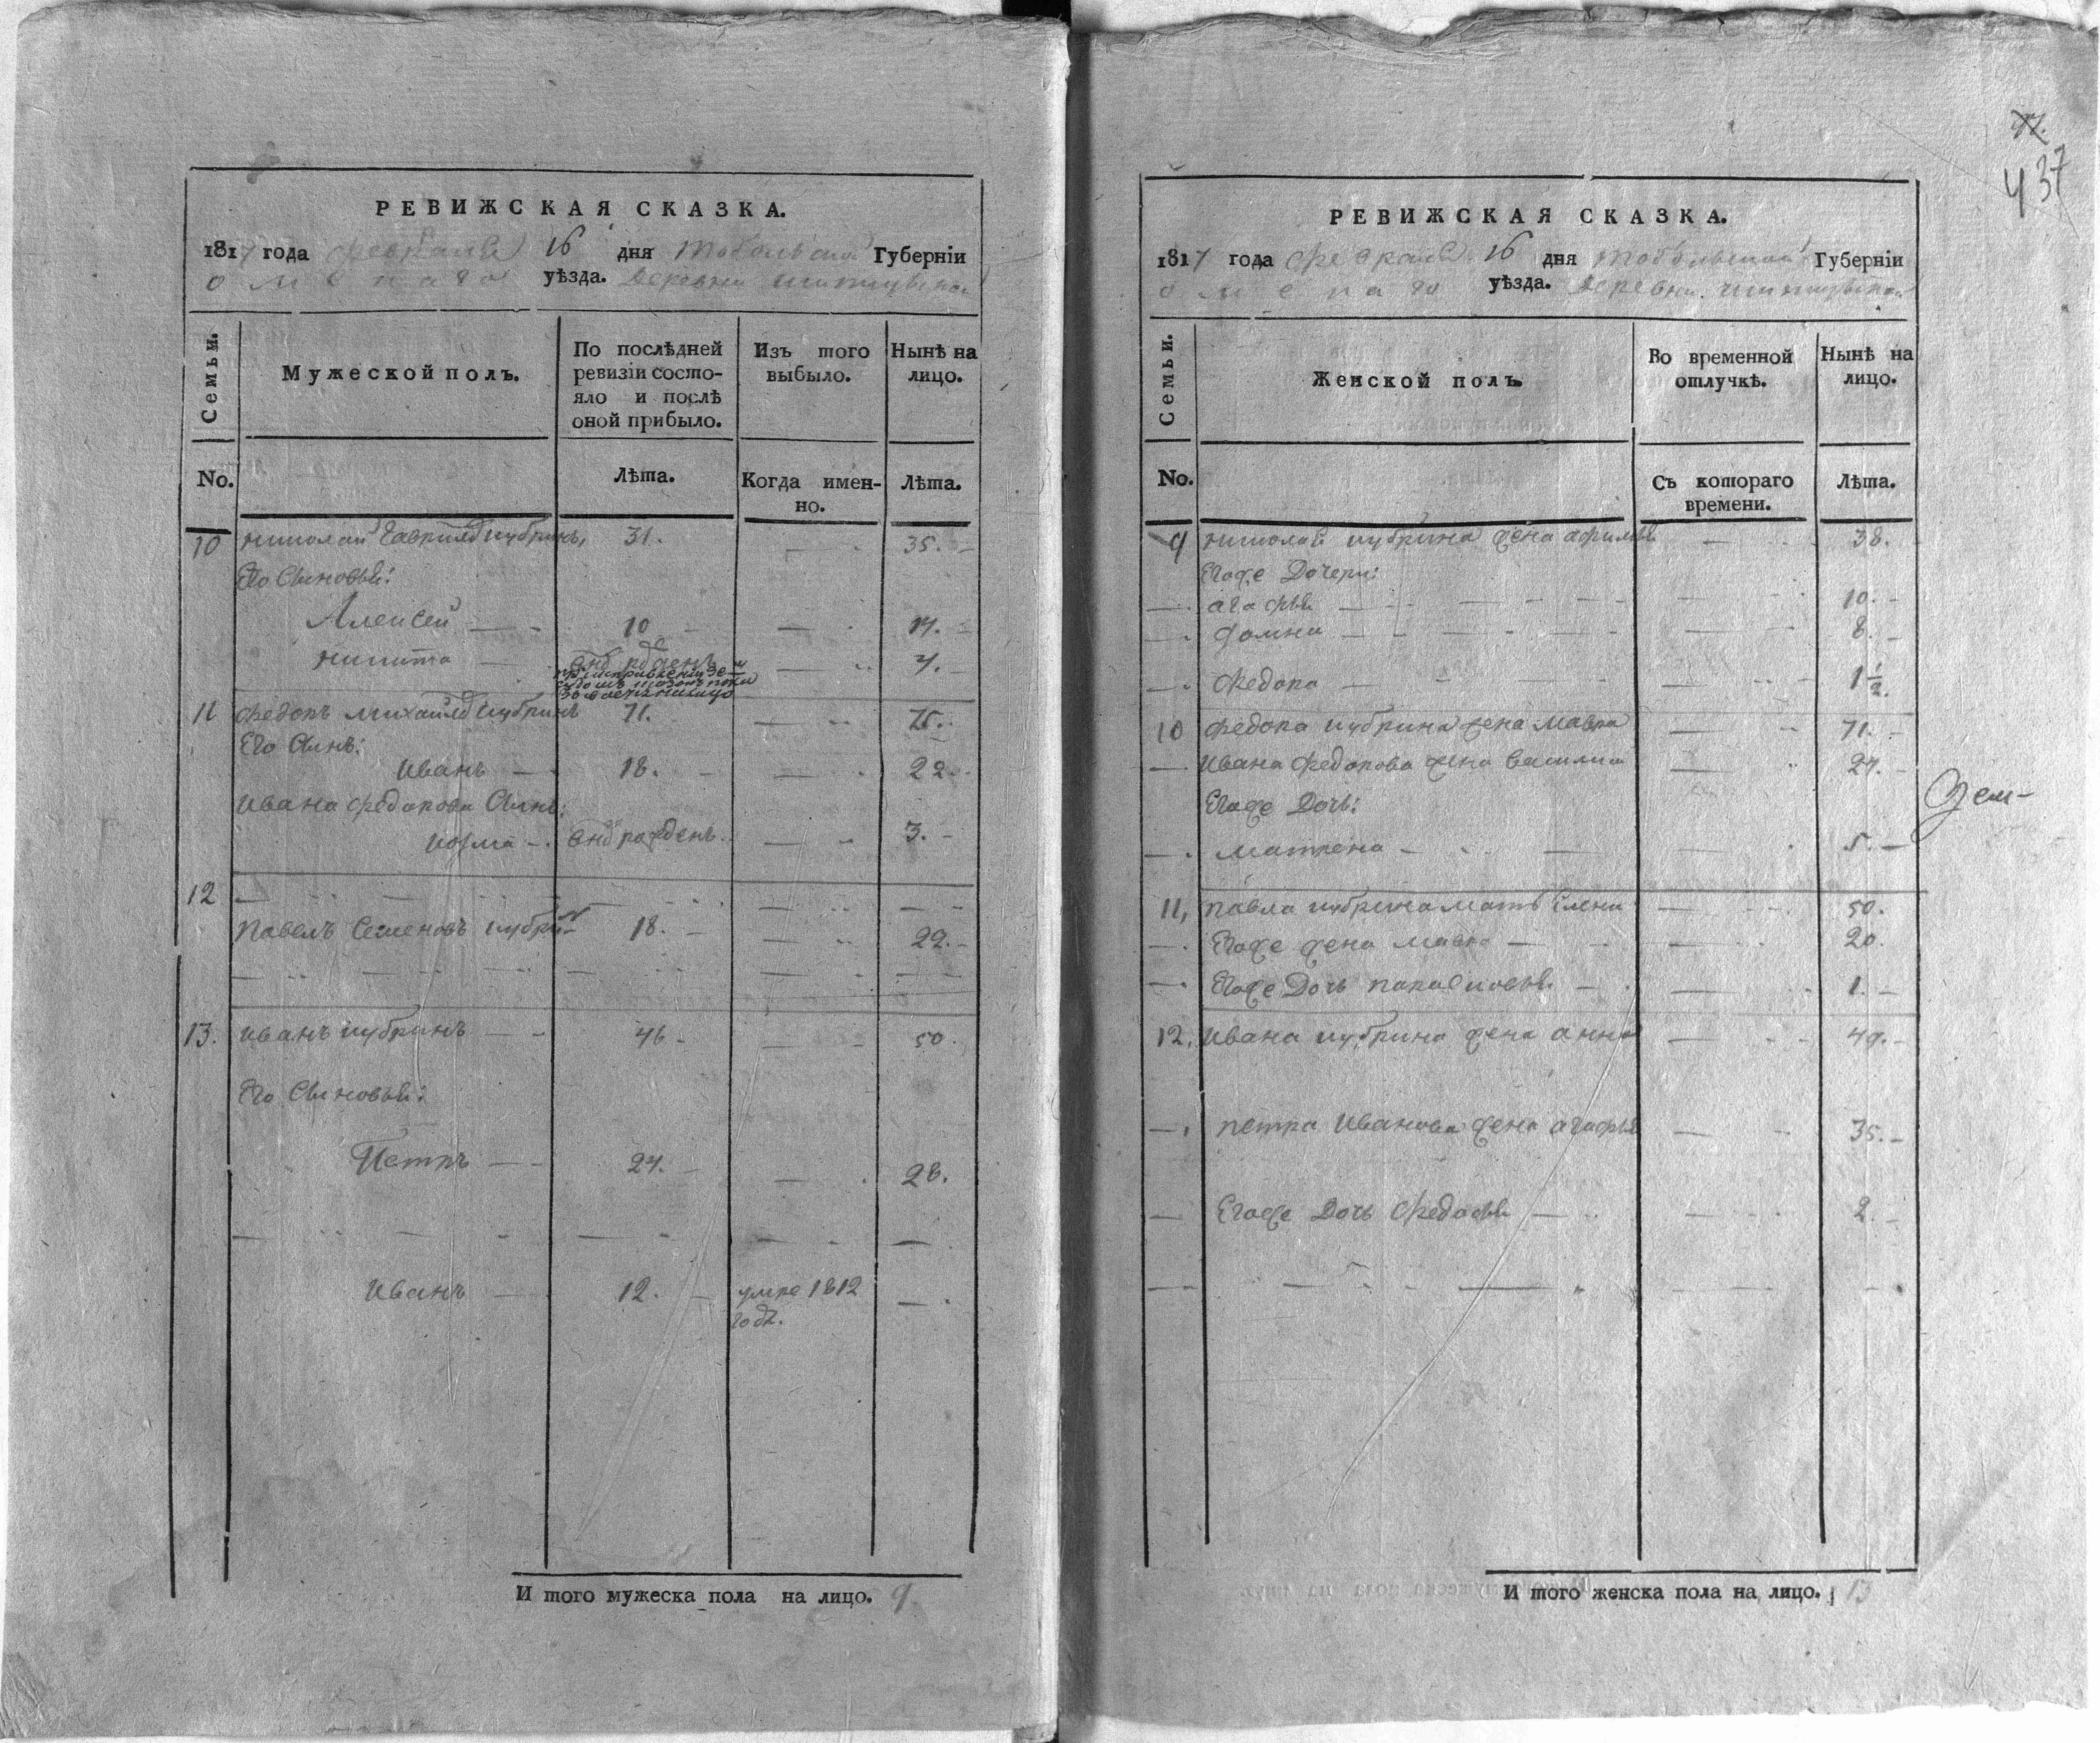 97.
437
РЕВИЖСКАЯ СКАЗКА.
1817 года февраля 16 дня Тобольской Губерніи
омскаго уѣзда. Деревни
Семьи.
Мужеской полъ.
По послѣдней ревизіи состояло и послѣ оной прибыло.
Изъ того выбыло.
Нынѣ на лицо.
No.
Лѣта.
Когда имен-
но.
Лѣта.
10 николай Гаврилов кубринъ, 31. — 35. —
Его Сыновья:
Алексей — 10 — 14. —
никита — — 4. —
11 федоръ михайлов кубринъ 71. — 75. —
Его Сынъ:
Иванъ — 18. — — 22.
Ивана федорова Сынъ:
козма — рожденъ — 3. —
12
Павелъ Семеновъ кубрин 18. — — 22. —
13. Иванъ кубринъ — 46 — — 50.
Его Сыновья:
Петръ — 24. — — 28.
Иванъ — 12. — умре 1812 — 
годѣ.
И того мужеска пола на лицо. 9.
РЕВИЖСКАЯ СКАЗКА.
1817 года февраля 16 дня тобольской Губерніи
омскаго уѣзда. Деревни
Семьи.
Женской полъ.
Во временной отлучкѣ.
Нынѣ на лицо.
No.
Съ котораго
времени.
Лѣта.
9 николая кубрина жена афимья — 38.
Егоже Дочери:
— агафья — — 10. —
— домна — — 8. —
— федора — — 1½.
10 федора кубрина жена мавра — 71. —
— Ивана федорова жена василиса — 24. —
Егоже Дочь:
— матрена — — 5. —
Зем-
11, павла кубрина мать Елена — 50.
— Егоже жена мавра — — 20.
— Егоже Дочь парасковья — — 1. —
12, Ивана кубрина жена анна — 49. —
— петра Иванова жена агафья — 35. —
— Егоже Дочь федосья — — 2. —
И того женска пола на лицо. 13